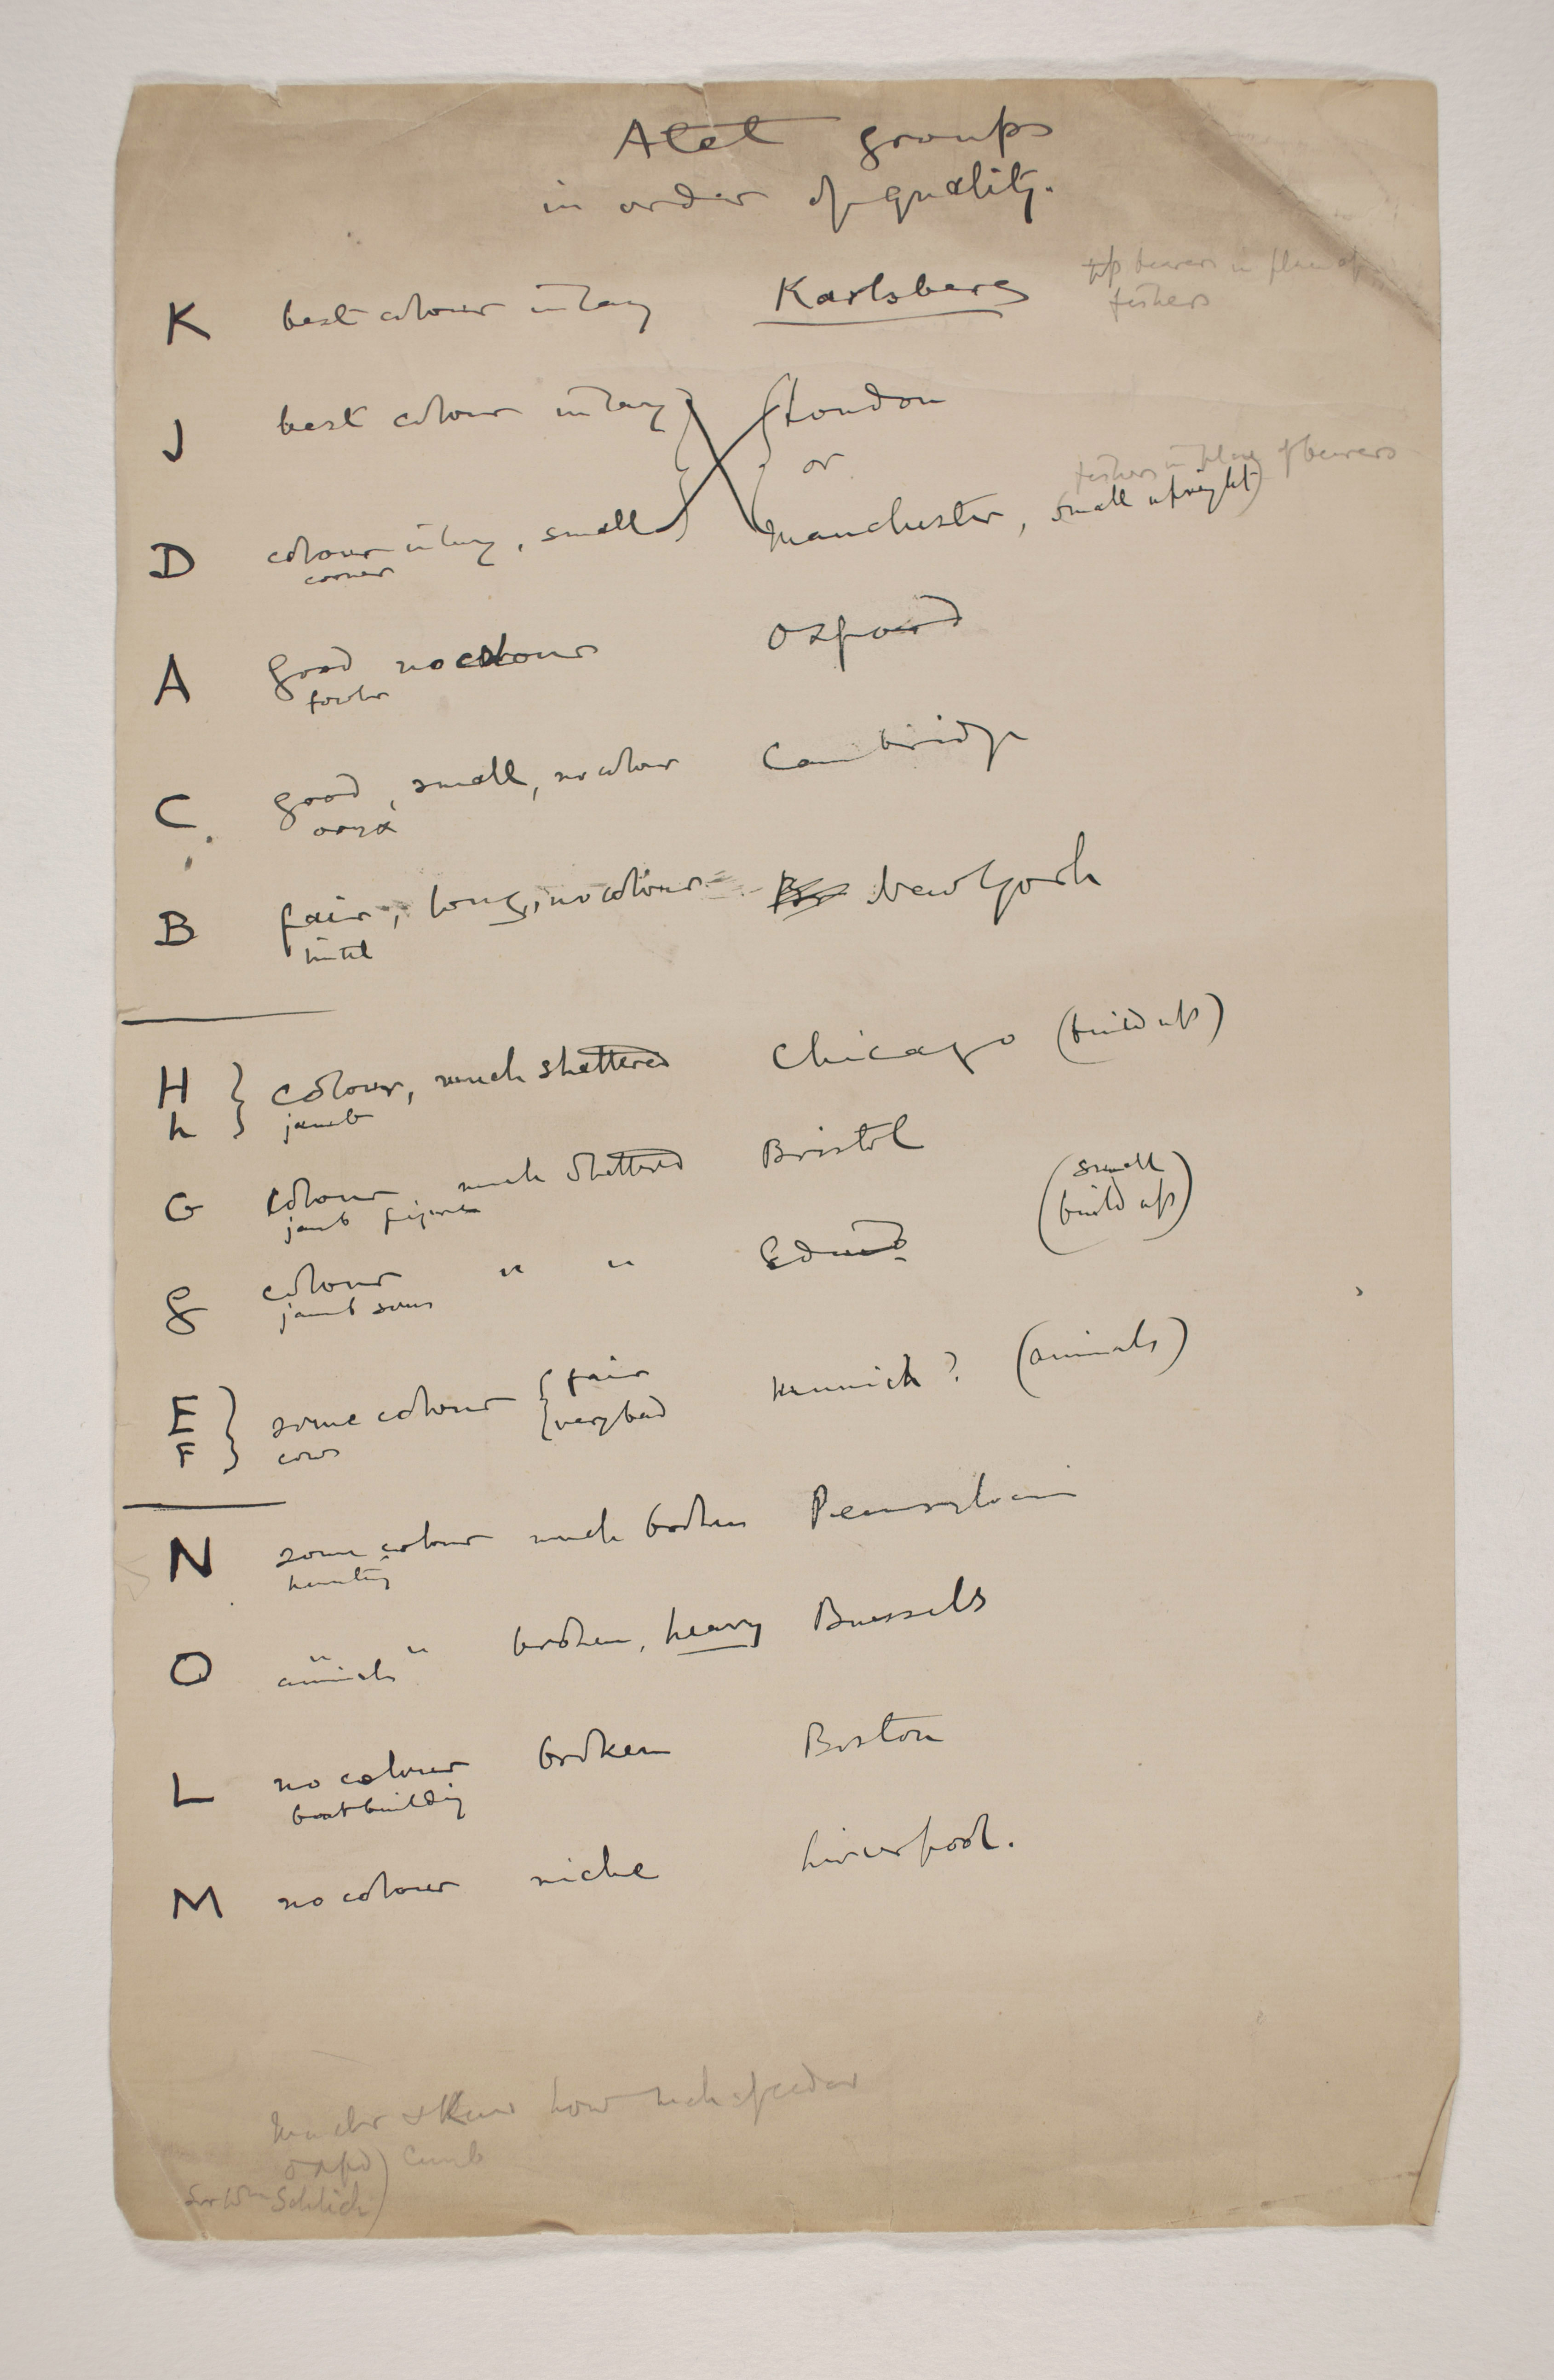 Atet groups
in order of quality.
K best colour inlay Karlsberg top bearers in place of
fishers
J best colour inlay London
or
fishers in place of bearers
D colour inlay, small Manchester, small upright)
corner
A good no colour Oxford
fowler
C good, small, no colour Cambridge
oryx
B fair, long, no colour New York
H colour, much shattered Chicago (build up)
h jamb
G colour much shattered Bristol
jamb figures
(small
build up)
g colour " " Edinb
jamb sons
E some colour fair Munich? (animals)
F cows very bad
N some colour much broken Pennsylvania
hunting
O " " broken, heavy Brussels
animals
L no colour broken Boston
boatbuilding
M no colour niche Liverpool.
how
Oxfd) Camb
Sir Wm Schlich)